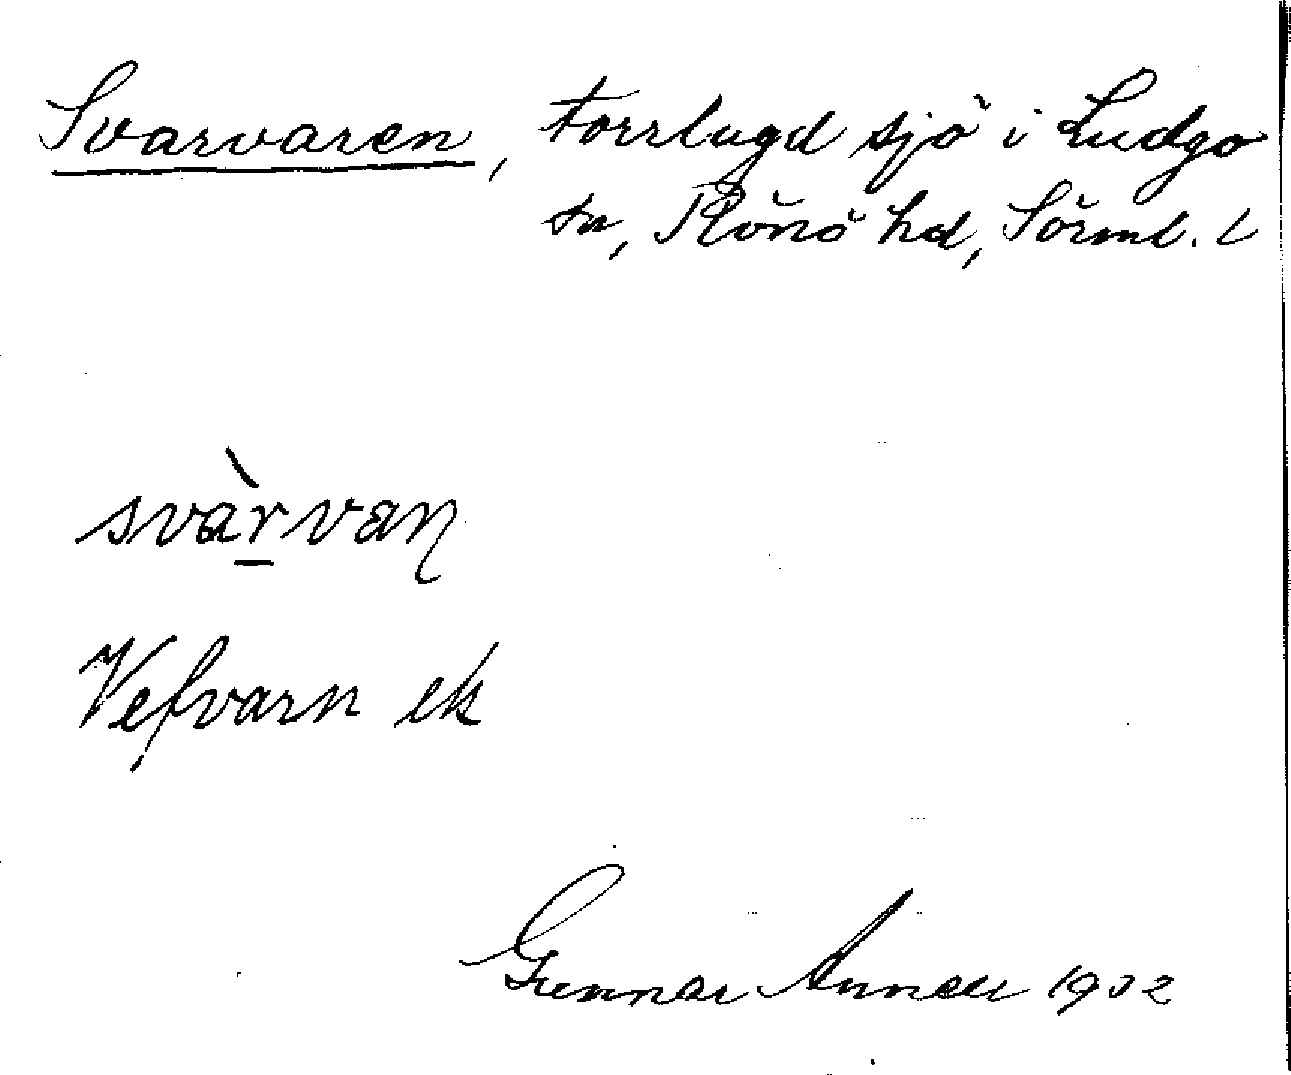 Svarvaren, torrlagd sjö i Ludgo
sn, Rönö hd, Sörml. l
svàrvaη
Vefvarn ek
Gunnar Annell 1932